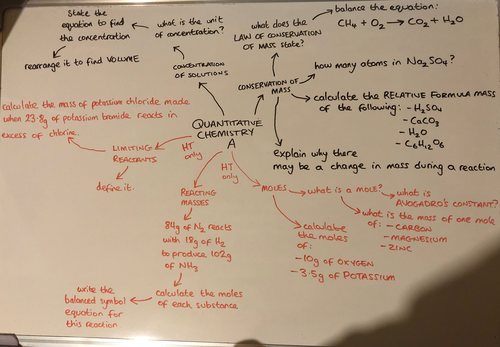 State the
equation to find
the concentration
rearrange it to find VOLUME
what is the unit
of concentration?
CONCENTRATION
OF SOLUTIONS
what does the
LAW OF CONSERVATION
OF MASS state?
balance the equation:
CH₄ + O₂ → CO₂ + H₂O
how many atoms in Na₂SO₄?
CONSERVATION OF
MASS
calculate the RELATIVE FORMULA MASS
of the following: - H₂SO₄
- CaCO₃
- H₂O
- C₆H₁₂O₆
explain why there
may be a change in mass during a reaction
QUANTITATIVE
CHEMISTRY
A
calculate the mass of potassium chloride made
when 23.8g of potassium bromide reacts in
excess of chlorine.
HT
only
LIMITING
REACTANTS
define it.
HT
only
REACTING
MASSES
84g of N₂ reacts
with 18g of H₂
to produce 102g
of NH₃
calculate the moles
of each substance
write the
balanced symbol
equation for
this reaction.
MOLES
what is a mole?
what is
AVOGADRO'S CONSTANT?
what is the mass of one mole
of: - CARBON
- MAGNESIUM
- ZINC
calculate
the moles
of:
- 10g of OXYGEN
- 3.5g of POTASSIUM